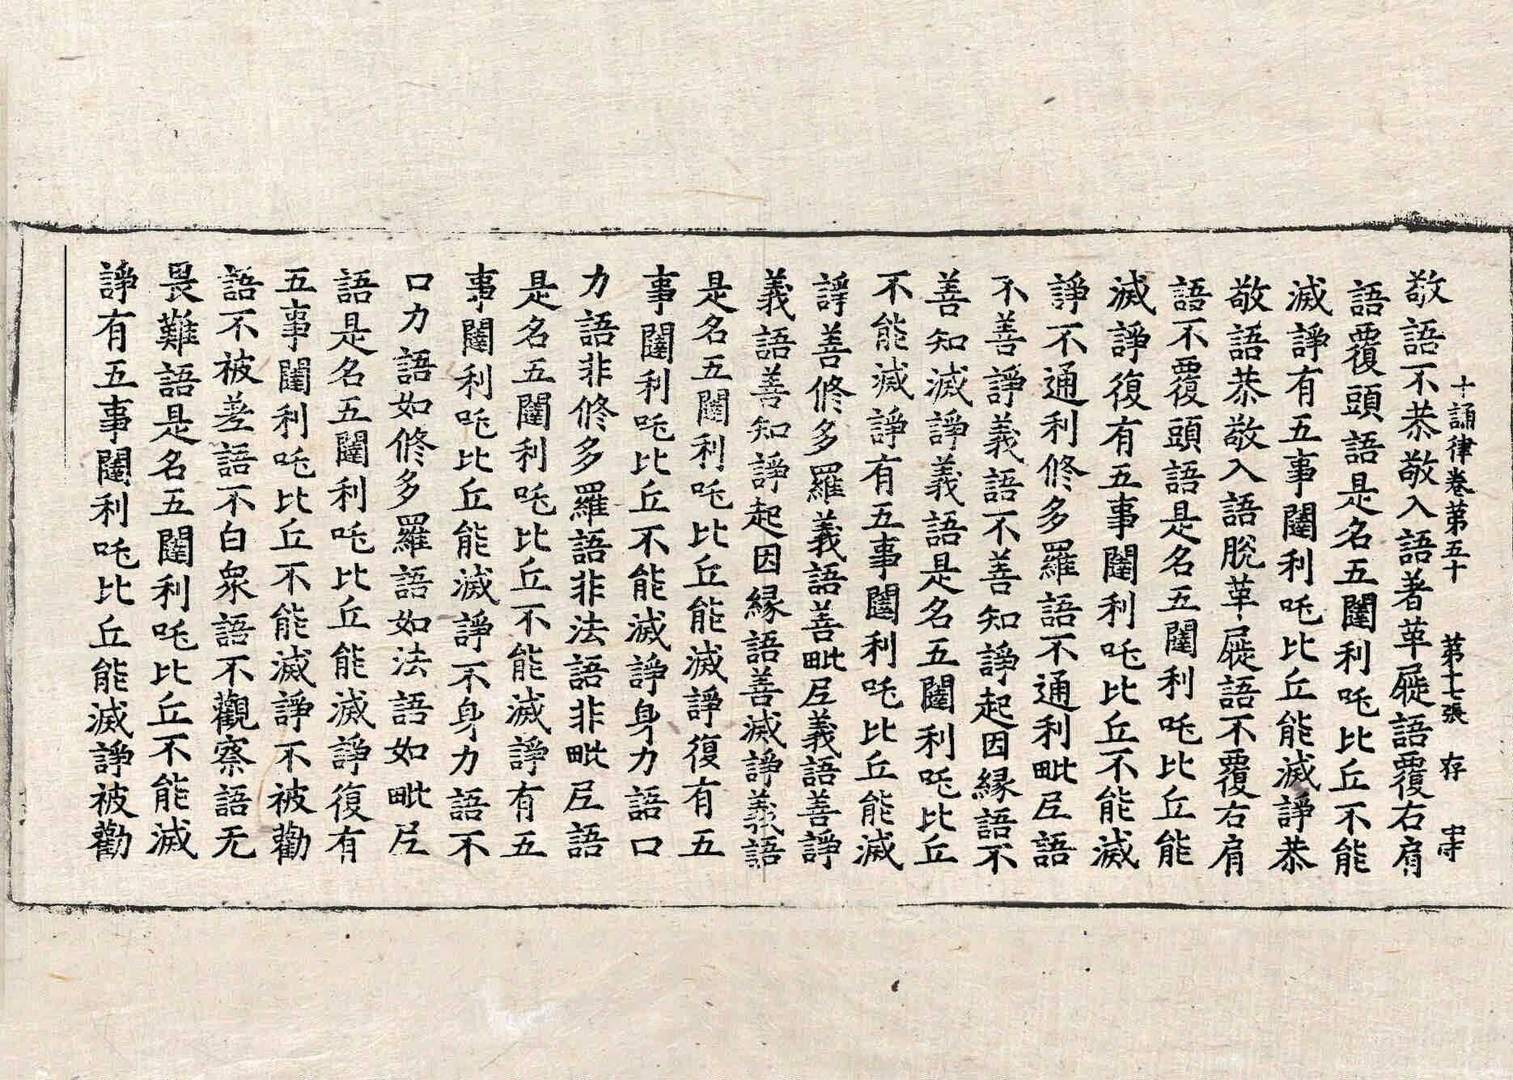 敬語不恭敬入語著革屣語覆右肩
十誦律卷第五十 第十七張 存 字
語覆頭語是名五闥利吒比丘不能
滅諍有五事闥利吒比丘能滅諍恭
敬語恭敬入語脫革屣語不覆右肩
語不覆頭語是名五闥利吒比丘能
滅諍復有五事闥利吒比丘不能滅
諍不通利修多羅語不通利毗尼語
不善諍義語不善知諍起因緣語不
善知滅諍義語是名五闥利吒比丘
不能滅諍有五事闥利吒比丘能滅
諍善修多羅義語善毗尼義語善諍
義語善知諍起因緣語善滅諍義語
是名五闥利吒比丘能滅諍復有五
事闥利吒比丘不能滅諍身力語口
力語非修多羅語非法語非毗尼語
是名五闥利吒比丘不能滅諍有五
事闥利吒比丘能滅諍不身力語不
口力語如修多羅語如法語如毗尼
語是名五闥利吒比丘能滅諍復有
五事闥利吒比丘不能滅諍不被勸
語不被差語不白衆語不觀察語无
畏難語是名五闥利吒比丘不能滅
諍有五事闥利吒比丘能滅諍被勸